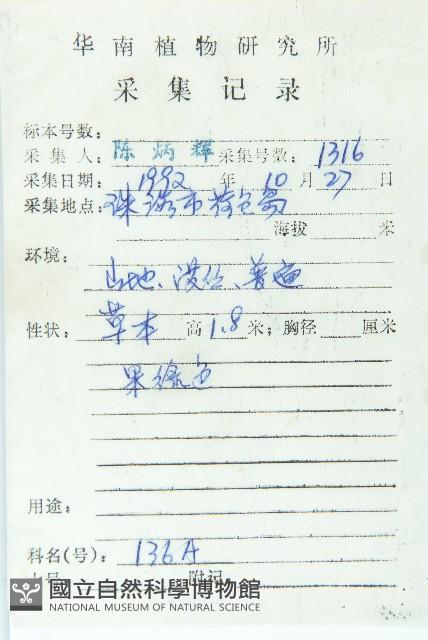 华南植物研究所
采集记录
标本号数:
采集人: 陈炳辉 采集号数: 1316
采集日期: 1992 年 10 月 27 日
采集地点: 珠海市荷包岛
海拔 米
环境:
山地、普遍
性状: 草本 高 1.8 米; 胸径 厘米
果绿色
用途:
科名(号): 136A
附记
國立自然科學博物館
NATIONAL MUSEUM OF NATURAL SCIENCE